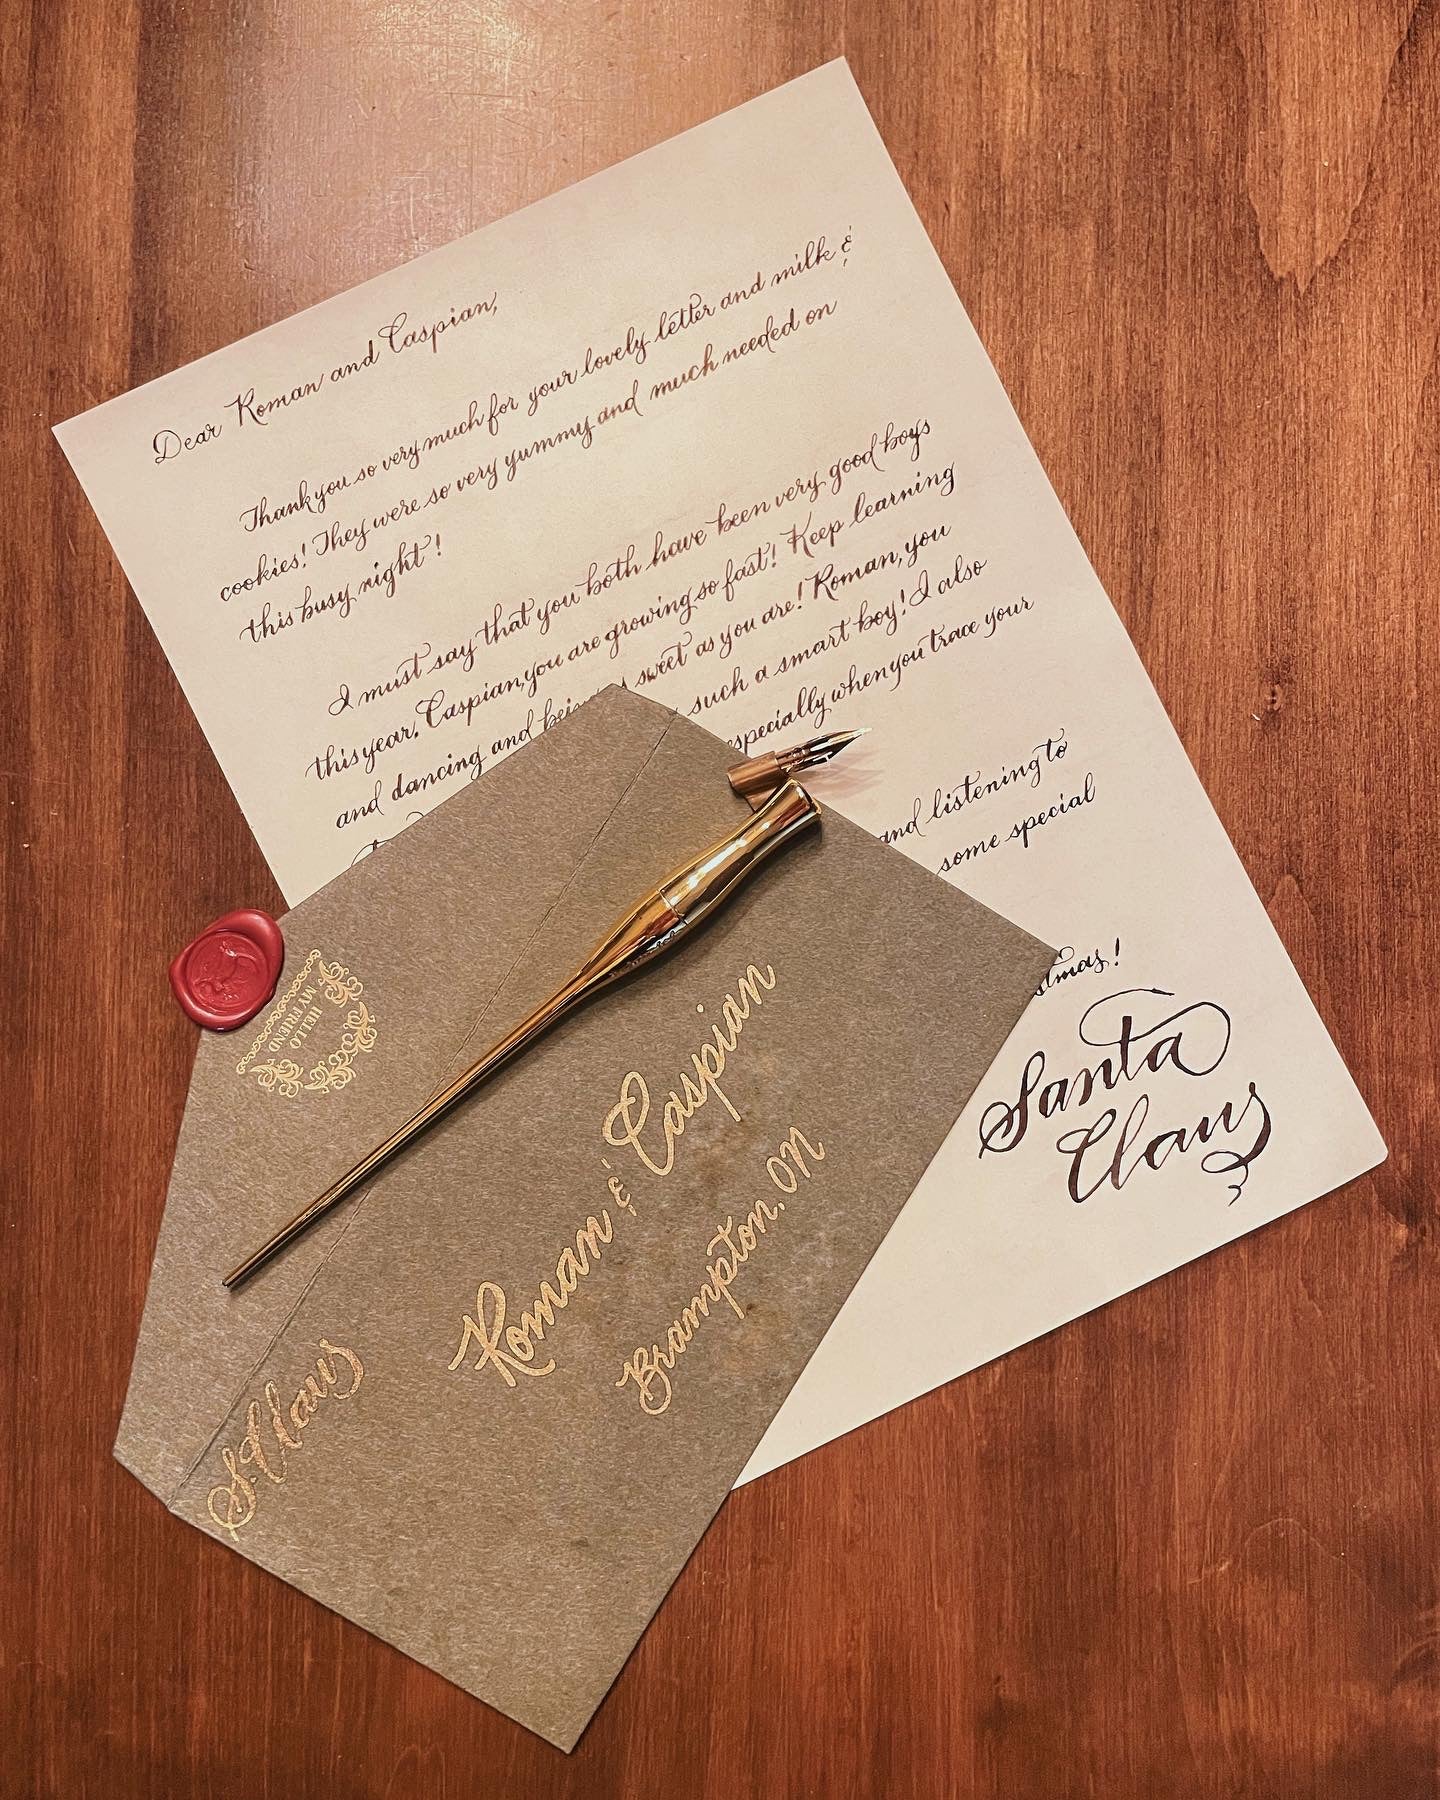 Dear Roman and Caspian,
Thank you so very much for your lovely letter and milk &
cookies! They were so very yummy and much needed on
this busy night!
I must say that you both have been very good boys
this year. Caspian, you are growing so fast! Keep learning
and dancing and being as sweet as you are! Roman, you
such a smart boy! I also
especially when you trace your
and listening to
some special
Santa
Claus
HELLO
MY FRIEND
Roman & Caspian
Brampton, ON
S. Claus